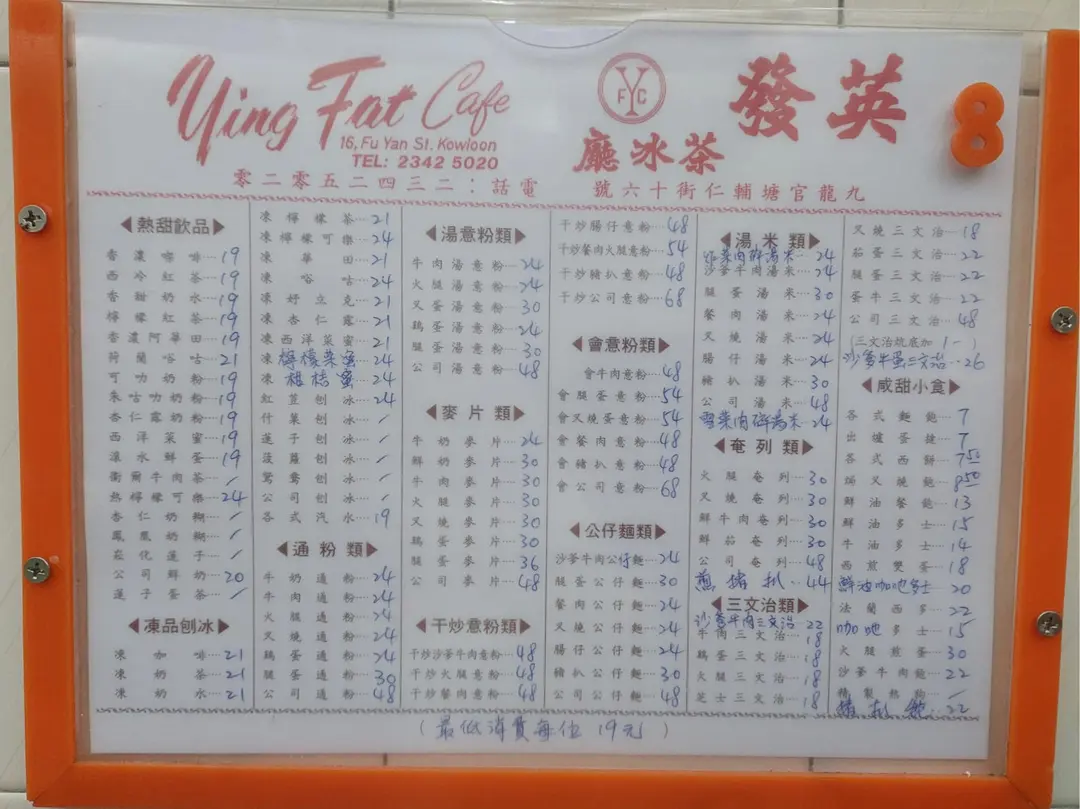 Ying Fat Cafe
16, Fu Yan St. Kowloon
TEL: 2342 5020
FYC
英發
茶冰廳
8
九龍官塘輔仁街十六號
電話：二三四二五零二零
熱甜飲品
香濃咖啡 19
西冷紅茶 19
香甜奶水 19
檸檬紅茶 19
香濃阿華田 19
荷蘭咯咕 21
可叻奶粉 19
朱咕叻奶粉 19
杏仁露奶粉 19
西洋菜蜜 19
滾水鮮蛋 19
衛爾牛肉茶 /
熱檸檬可樂 24
杏仁奶糊 /
鳳凰奶糊 /
崧化蓮子 /
公司鮮奶 20
蓮子蛋茶 /
凍品刨冰
凍咖啡 21
凍奶茶 21
凍奶水 21
凍檸檬茶 21
凍檸檬可樂 24
凍華田 21
凍咯咕 24
凍好立克 21
凍杏仁露 21
凍西洋菜蜜 21
凍檸檬菜蜜 24
凍柑桔蜜 24
紅荳刨冰 24
什菓刨冰 /
蓮子刨冰 /
菠蘿刨冰 /
鴛鴦刨冰 /
公司刨冰 /
各式汽水 19
通粉類
牛奶通粉 24
牛肉通粉 24
火腿通粉 24
叉燒通粉 24
鷄蛋通粉 24
腿蛋通粉 30
公司通粉 48
湯意粉類
牛肉湯意粉 24
火腿湯意粉 24
叉蛋湯意粉 30
鷄蛋湯意粉 24
腿蛋湯意粉 30
公司湯意粉 48
麥片類
牛奶麥片 24
鮮奶麥片 30
牛肉麥片 30
火腿麥片 30
叉燒麥片 30
鷄蛋麥片 30
腿蛋麥片 36
公司麥片 48
干炒意粉類
干炒沙爹牛肉意粉 48
干炒火腿意粉 48
干炒餐肉意粉 48
干炒腸仔意粉 48
干炒餐肉火腿意粉 54
干炒豬扒意粉 48
干炒公司意粉 68
會意粉類
會牛肉意粉 48
會腿蛋意粉 54
會叉燒蛋意粉 54
會餐肉意粉 48
會豬扒意粉 48
會公司意粉 68
公仔麵類
沙爹牛肉公仔麵 24
腿蛋公仔麵 30
餐肉公仔麵 24
叉燒公仔麵 24
腸仔公仔麵 24
豬扒公仔麵 30
公司公仔麵 48
湯米類
菜肉碎湯米 24
沙爹牛肉湯米 24
腿蛋湯米 30
餐肉湯米 24
叉燒湯米 24
腸仔湯米 24
豬扒湯米 30
公司湯米 48
雪菜肉碎湯米 24
奄列類
火腿奄列 30
叉燒奄列 30
鮮牛肉奄列 30
鮮茄奄列 30
公司奄列 48
煎豬扒 44
三文治類
沙爹牛肉三文治 22
牛肉三文治 18
鷄蛋三文治 18
火腿三文治 18
芝士三文治 18
叉燒三文治 18
茄蛋三文治 22
腿蛋三文治 22
蛋牛三文治 22
公司三文治 48
(三文治烘底加 1-)
沙爹牛蛋三文治 26
咸甜小食
各式麵飽 7
出爐蛋撻 7
各式西餅 7.50
焗叉燒飽 8.50
鮮油餐飽 13
鮮油多士 15
牛油多士 14
西煎雙蛋 18
鮮油咖吔多士 20
法蘭西多 22
咖吔多士 15
火腿煎蛋 30
沙爹牛肉飽 22
精製熱狗 /
豬扒飽 22
(最低消費每位 19元)